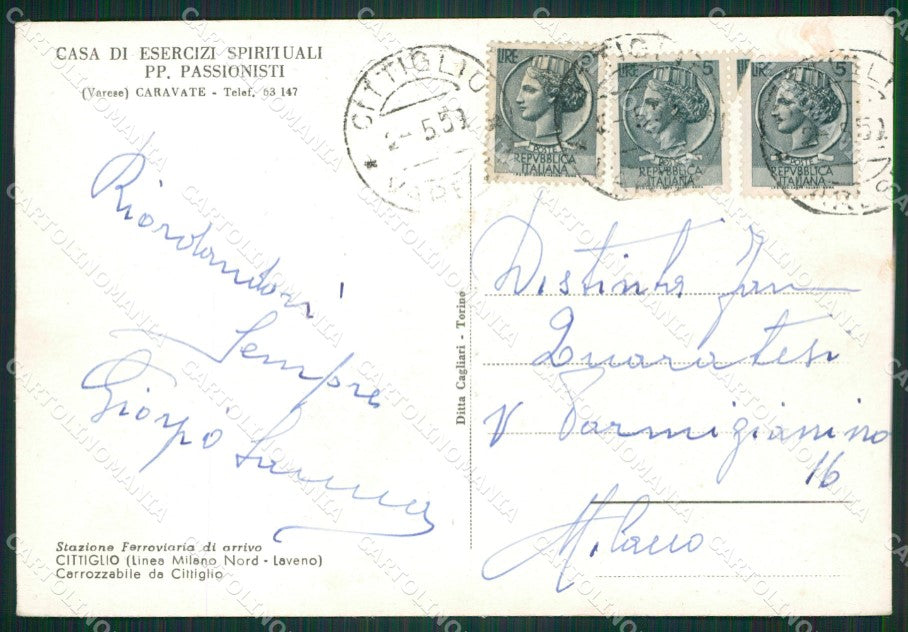 CASA DI ESERCIZI SPIRITUALI
PP. PASSIONISTI
(Varese) CARAVATE - Telef. 63 147
CITTIGLIO
LIRE
POSTE
REPVBBLICA
ITALIANA
LIRE 5
POSTE
REPVBBLICA
ITALIANA
LIRE 5
POSTE
REPVBBLICA
ITALIANA
Ricordandovi
Sempre
Giorgio Sanna
Distinta Fam
Quaratesi
V Parmigianino
16
Milano
Ditta Cagliari - Torino
Stazione Ferroviaria di arrivo
CITTIGLIO (Linea Milano Nord - Laveno)
Carrozzabile da Cittiglio
CARTOLINOMANIA